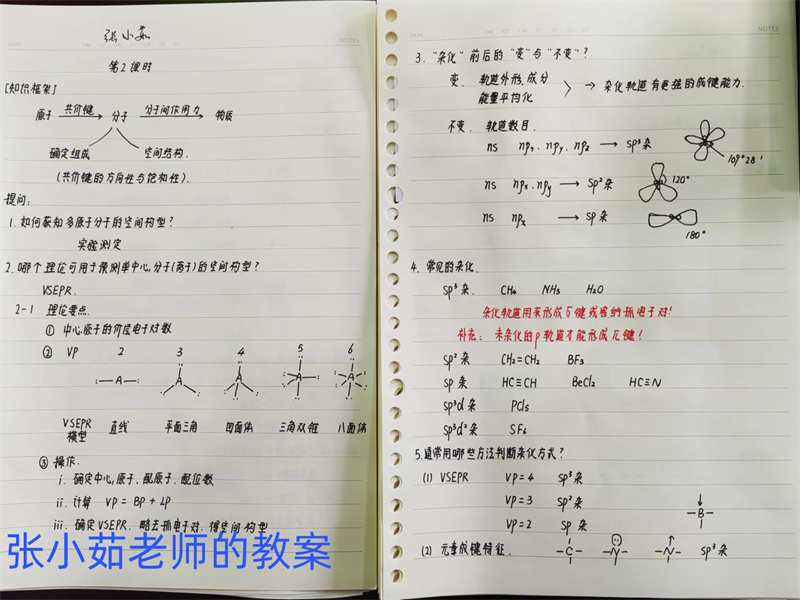 张小茹
NOTES
第2课时
[知识框架]
原子 共价键→ 分子 分子间作用力→ 物质
确定组成 空间结构.
(共价键的方向性与饱和性).
提问:
1.如何获知多原子分子的空间构型?
实验测定
2.哪个理论可用于预测单中心分子(离子)的空间构型?
VSEPR.
2-1 理论要点.
① 中心原子的价层电子对数
② VP 2 3 4 5 6
A A A A A
VSEPR模型 直线 平面三角 四面体 三角双锥 八面体
③ 操作.
i. 确定中心原子、配原子、配位数
ii. 计算 VP = BP + LP
iii. 确定VSEPR. 略去孤电子对. 得空间构型
张小茹老师的教案
NOTES
3."杂化"前后的"变"与"不变"?
变. 轨道外形、成分
能量平均化
→ 杂化轨道有更强的成键能力.
不变. 轨道数目.
ns npx、npy、npz → sp³杂
109°28'
ns npx、npy → sp²杂
120°
ns npx → sp杂
180°
4. 常见的杂化.
sp³杂. CH4 NH3 H2O
杂化轨道用来形成σ键或容纳孤电子对!
补充: 未杂化的p轨道才能形成π键!
sp²杂 CH2=CH2 BF3
sp杂 HC≡CH BeCl2 HC≡N
sp³d杂 PCl5
sp³d²杂 SF6
5.通常用哪些方法判断杂化方式?
(1) VSEPR VP=4 sp³杂
VP=3 sp²杂
VP=2 sp杂
B
(2) 元素成键特征. C N N sp³杂